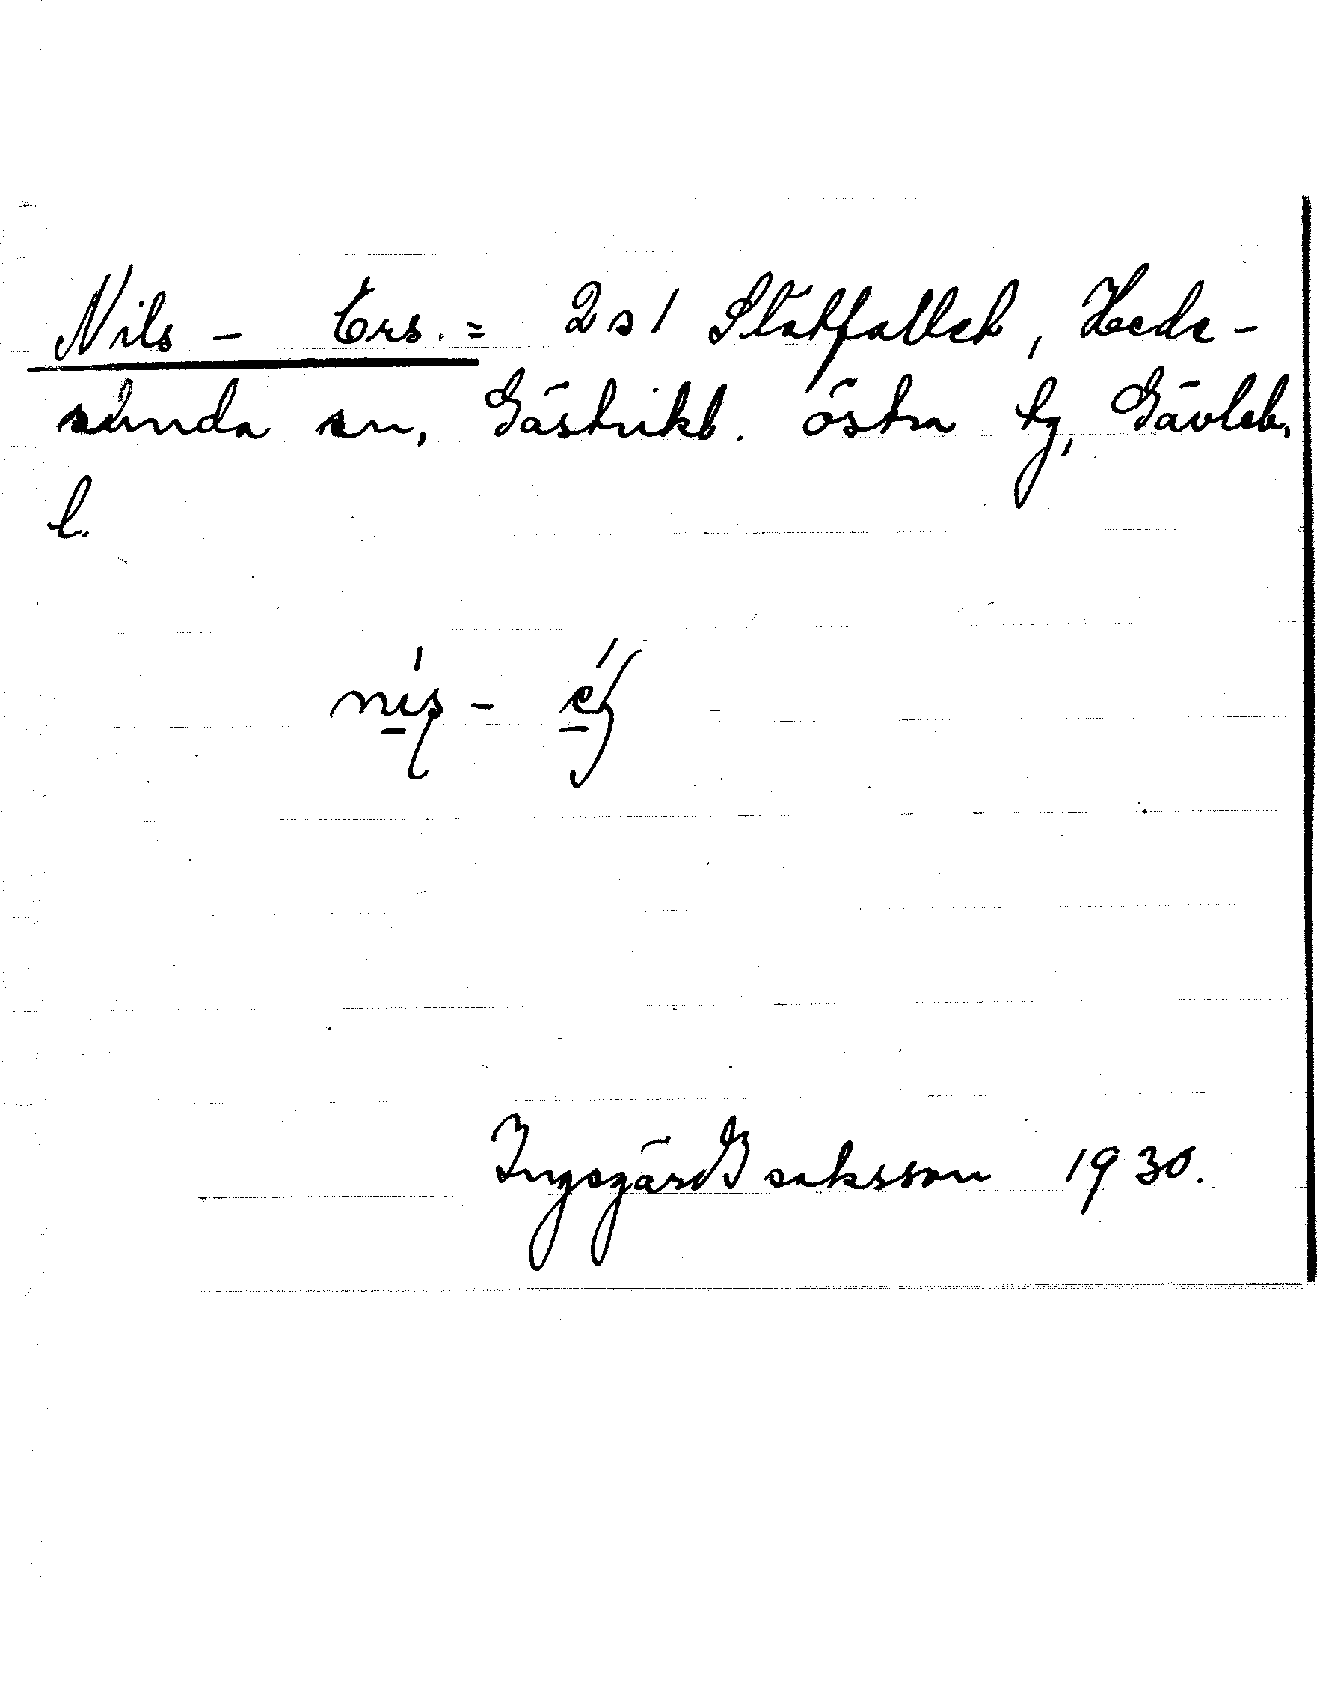 Nils - Ers. = 2 s 1 Slåttfallet, Hede-
sunda sn, Gästrikl. östra tg, Gävleb.
l.
Ingegärd Isaksson 1930.